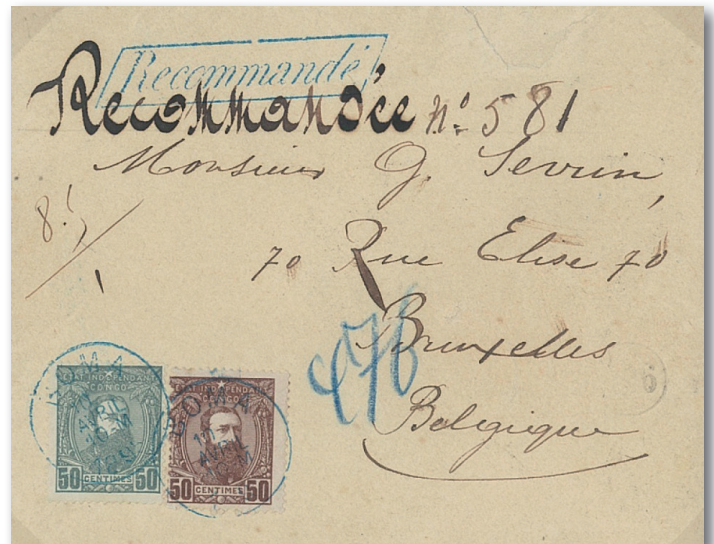 Recommandé
Recommandée nº 581
Monsieur G. Sevrin,
70 Rue Elise 70
Bruxelles
Belgique
476
BOMA
AVRIL
10 M
ETAT INDEPENDANT
CONGO
50 CENTIMES 50
BOMA
11
AVRIL
10 M
ETAT INDEPENDANT
CONGO
50 CENTIMES 50